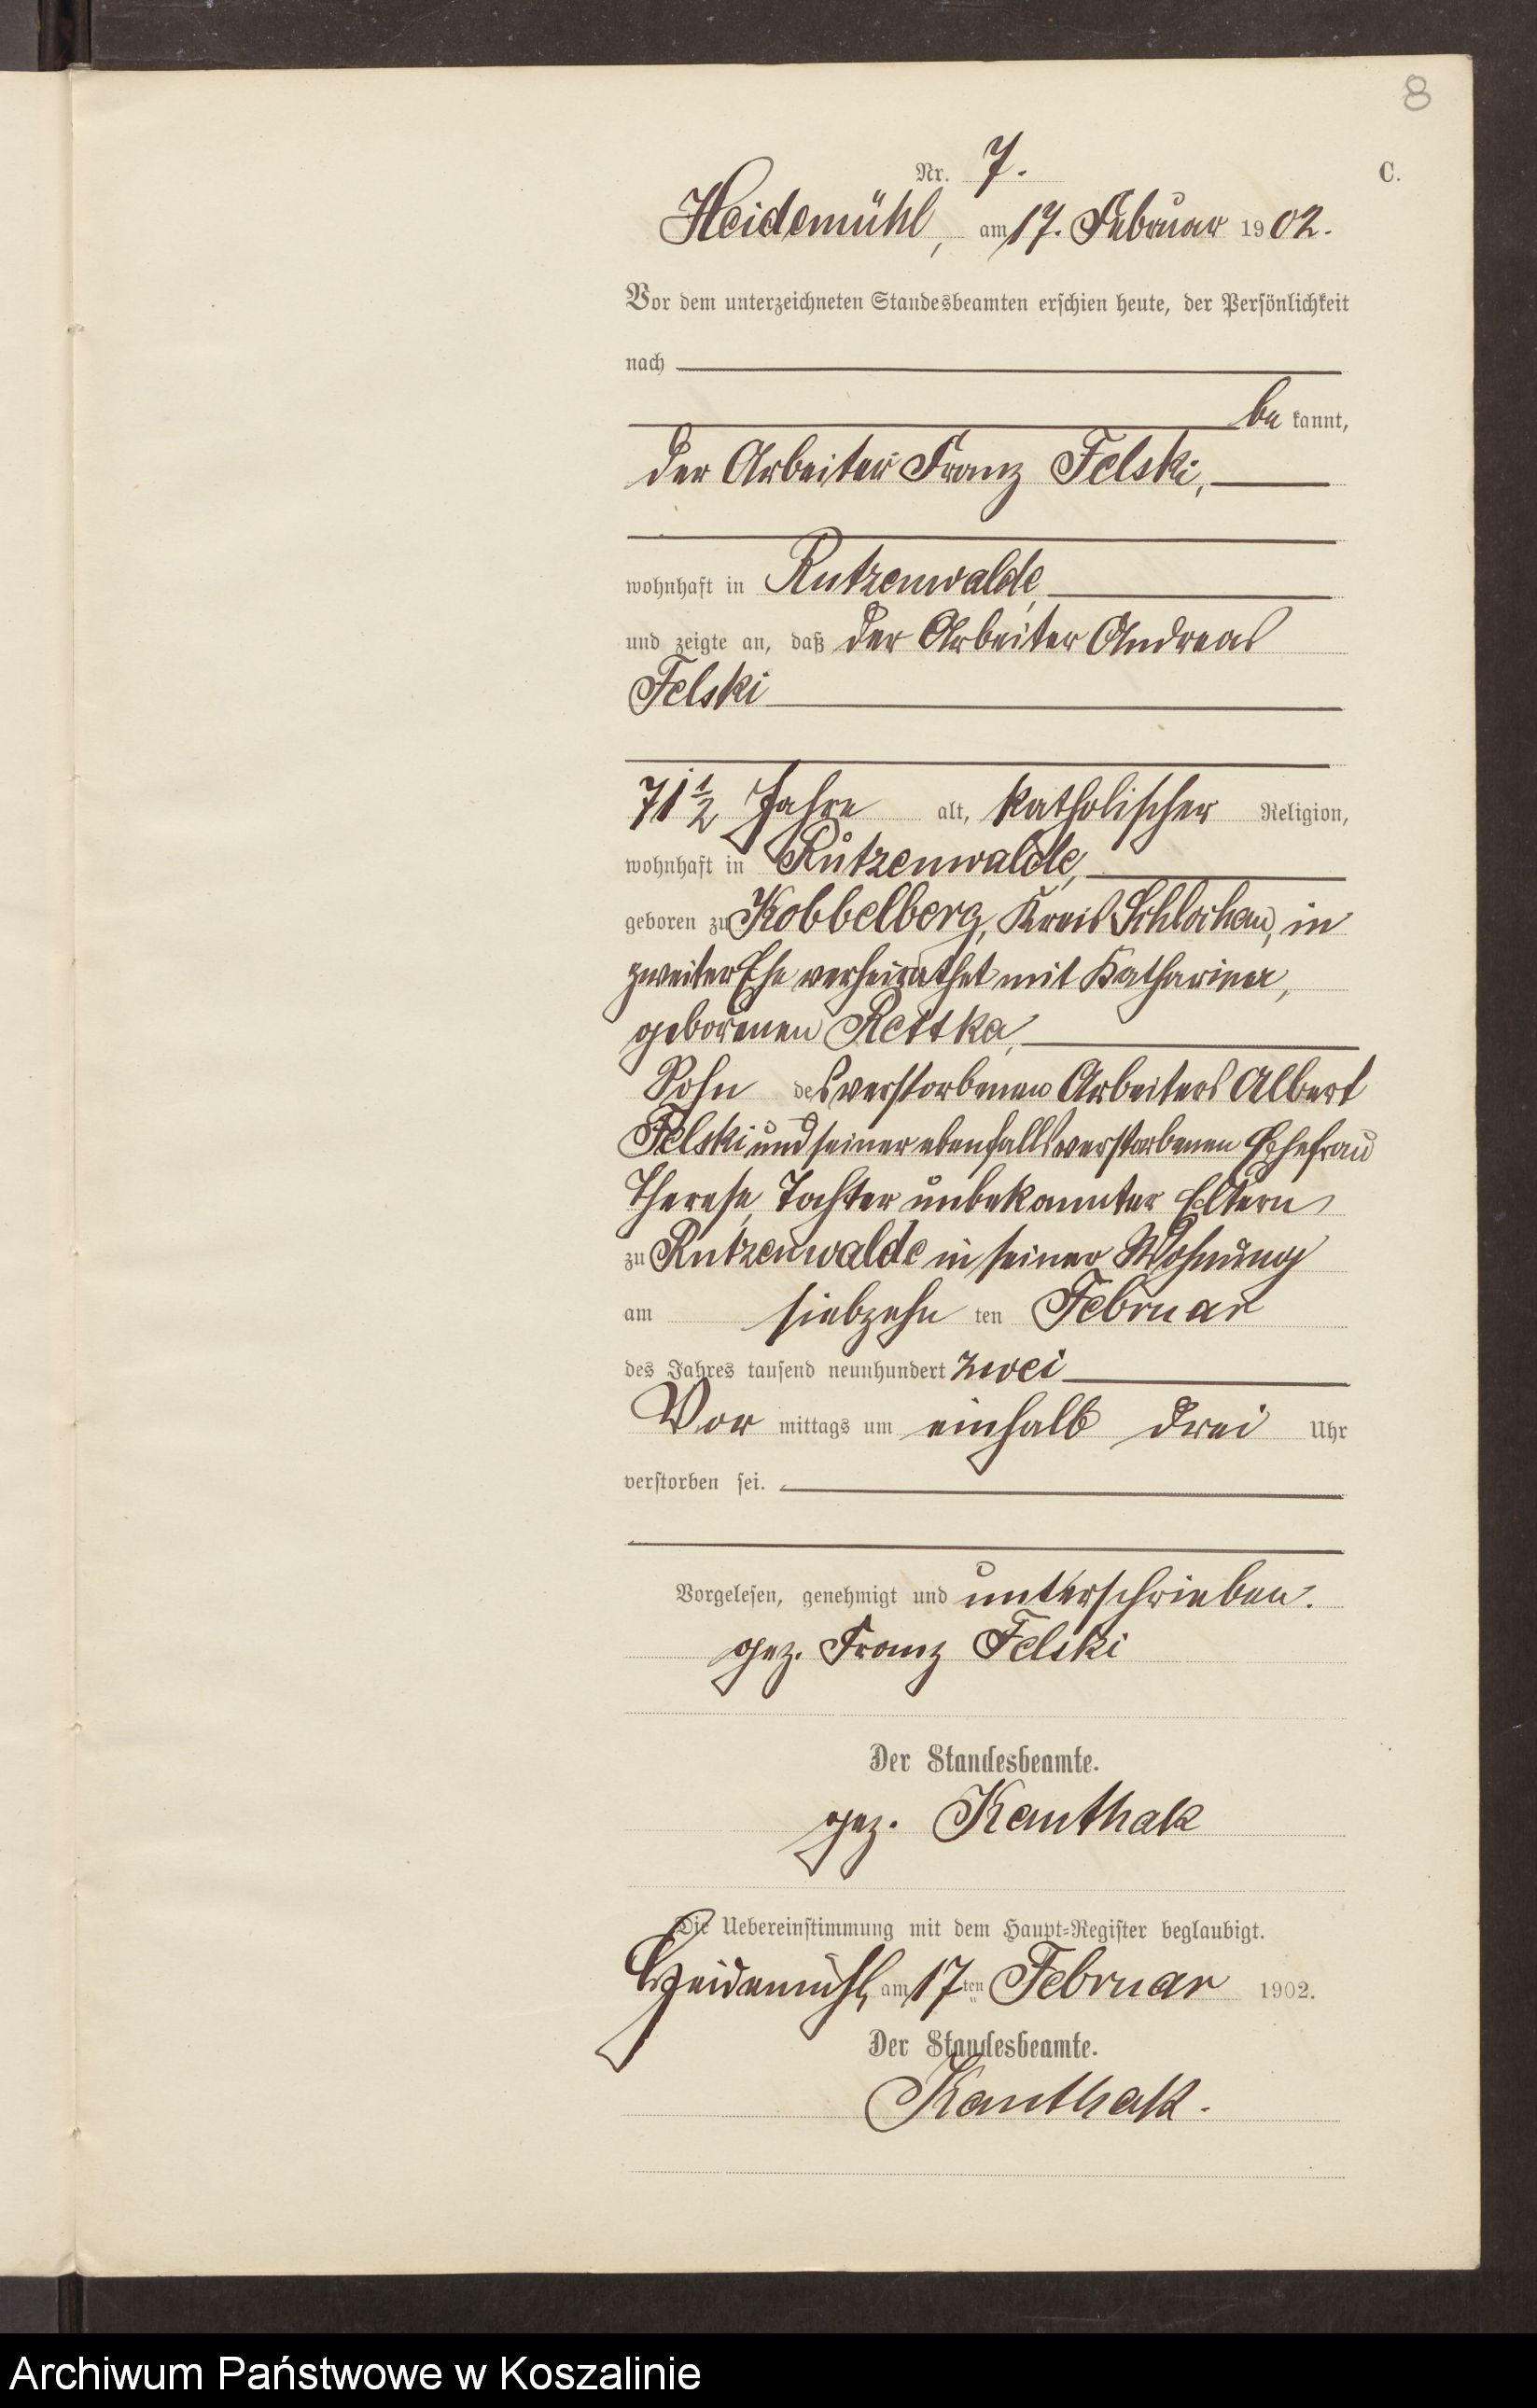 8
Nr. 7. C.
Heidemühl, am 17. Februar 1902.
Vor dem unterzeichneten Standesbeamten erschien heute, der Persönlichkeit
nach
be kannt,
der Arbeiter Franz Felski,
wohnhaft in Rutzenwalde,
und zeigte an, daß der Arbeiter Andreas
Felski
71 1/2 Jahre alt, katholischer Religion,
wohnhaft in Rutzenwalde,
geboren zu Kobbelberg, Kreis Schlochau, in
zweiter Ehe verheirathet mit Katharina,
geborenen Rettka,
Sohn des verstorbenen Arbeiters Albert
Felski und seiner ebenfalls verstorbenen Ehefrau
Therese, Tochter unbekannter Eltern
zu Rutzenwalde in seiner Wohnung
am siebzehn ten Februar
des Jahres tausend neunhundert zwei
Vor mittags um einhalb drei Uhr
verstorben sei.
Vorgelesen, genehmigt und unterschrieben.
gez. Franz Felski
Der Standesbeamte.
gez. Kanthak
Die Uebereinstimmung mit dem Haupt-Register beglaubigt.
Heidemühl, am 17ten Februar 1902.
Der Standesbeamte.
Kanthak.
Archiwum Państwowe w Koszalinie